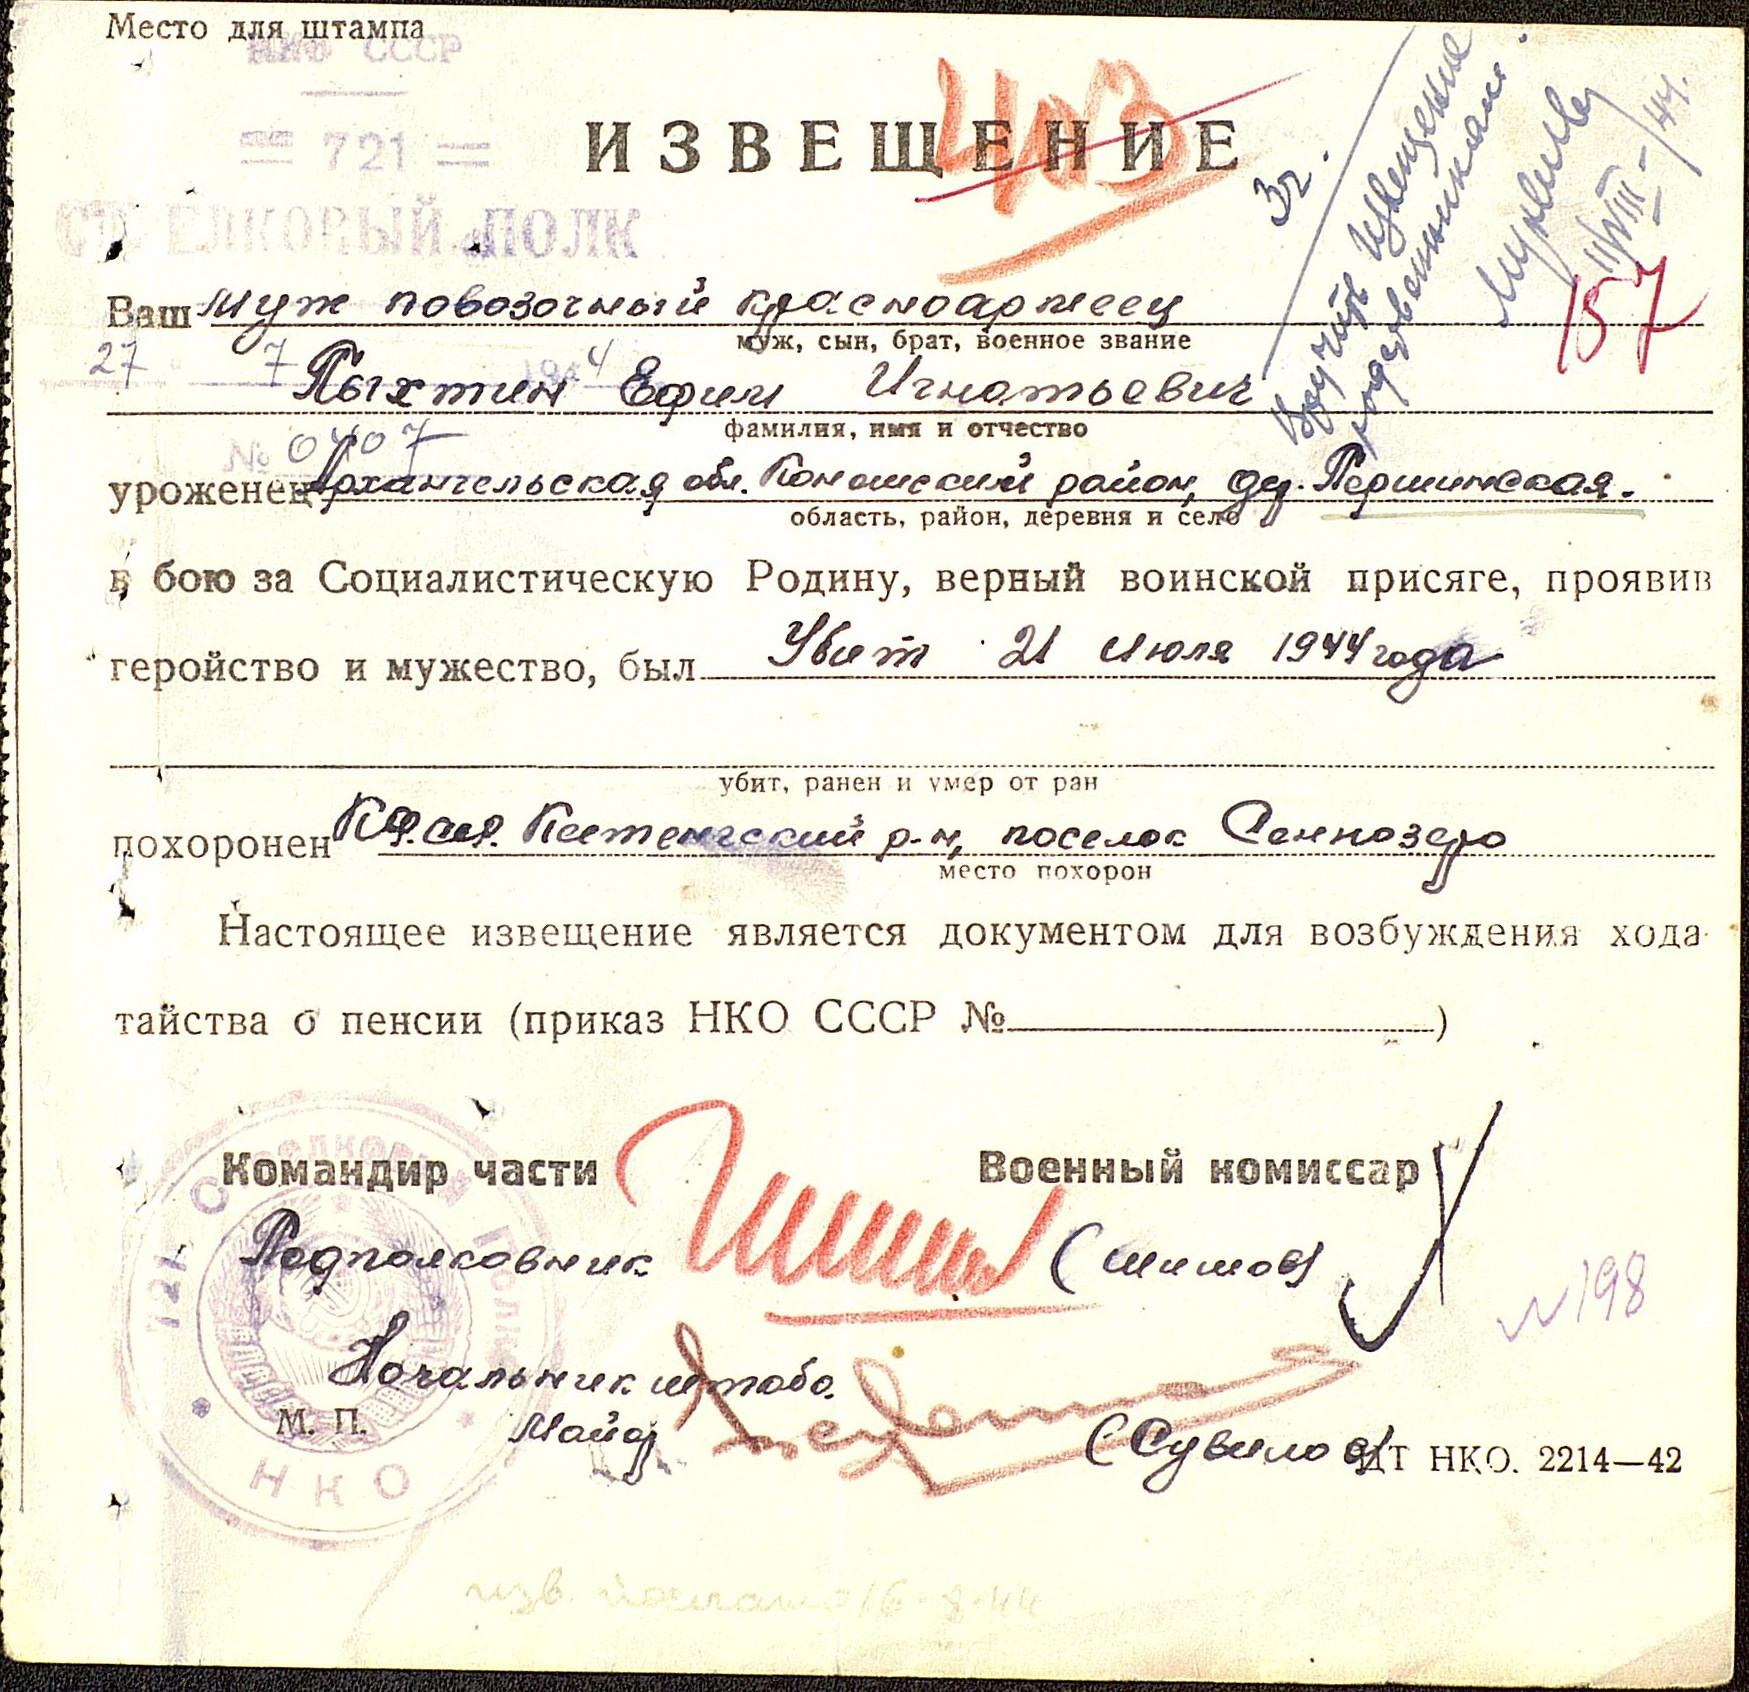 Место для штампа
НКО СССР
721
СТРЕЛКОВЫЙ ПОЛК
ИЗВЕЩЕНИЕ
403
Зч.
Вручить извещение
родственникам.
11/VIII-44.
157
Ваш муж повозочный красноармеец
муж, сын, брат, военное звание
27 7 1944
Пыхтин Ефим Игнатьевич
фамилия, имя и отчество
№ 0407
уроженец Архангельская обл. Коношский район, дер. Першинская.
область, район, деревня и село
в бою за Социалистическую Родину, верный воинской присяге, проявив
геройство и мужество, был Убит 21 июля 1944 года
убит, ранен и умер от ран
похоронен КФССР. Кестеньгский р-н, поселок Сеннозеро
место похорон
Настоящее извещение является документом для возбуждения хода
тайства о пенсии (приказ НКО СССР №)
Командир части Военный комиссар
Подполковник (Шишов)
№198
Начальник штаба
М. П. Майор (Сувилов)
ИТ НКО. 2214—42
721 Стрелковый Полк
НКО
изв. послано 16-8-44